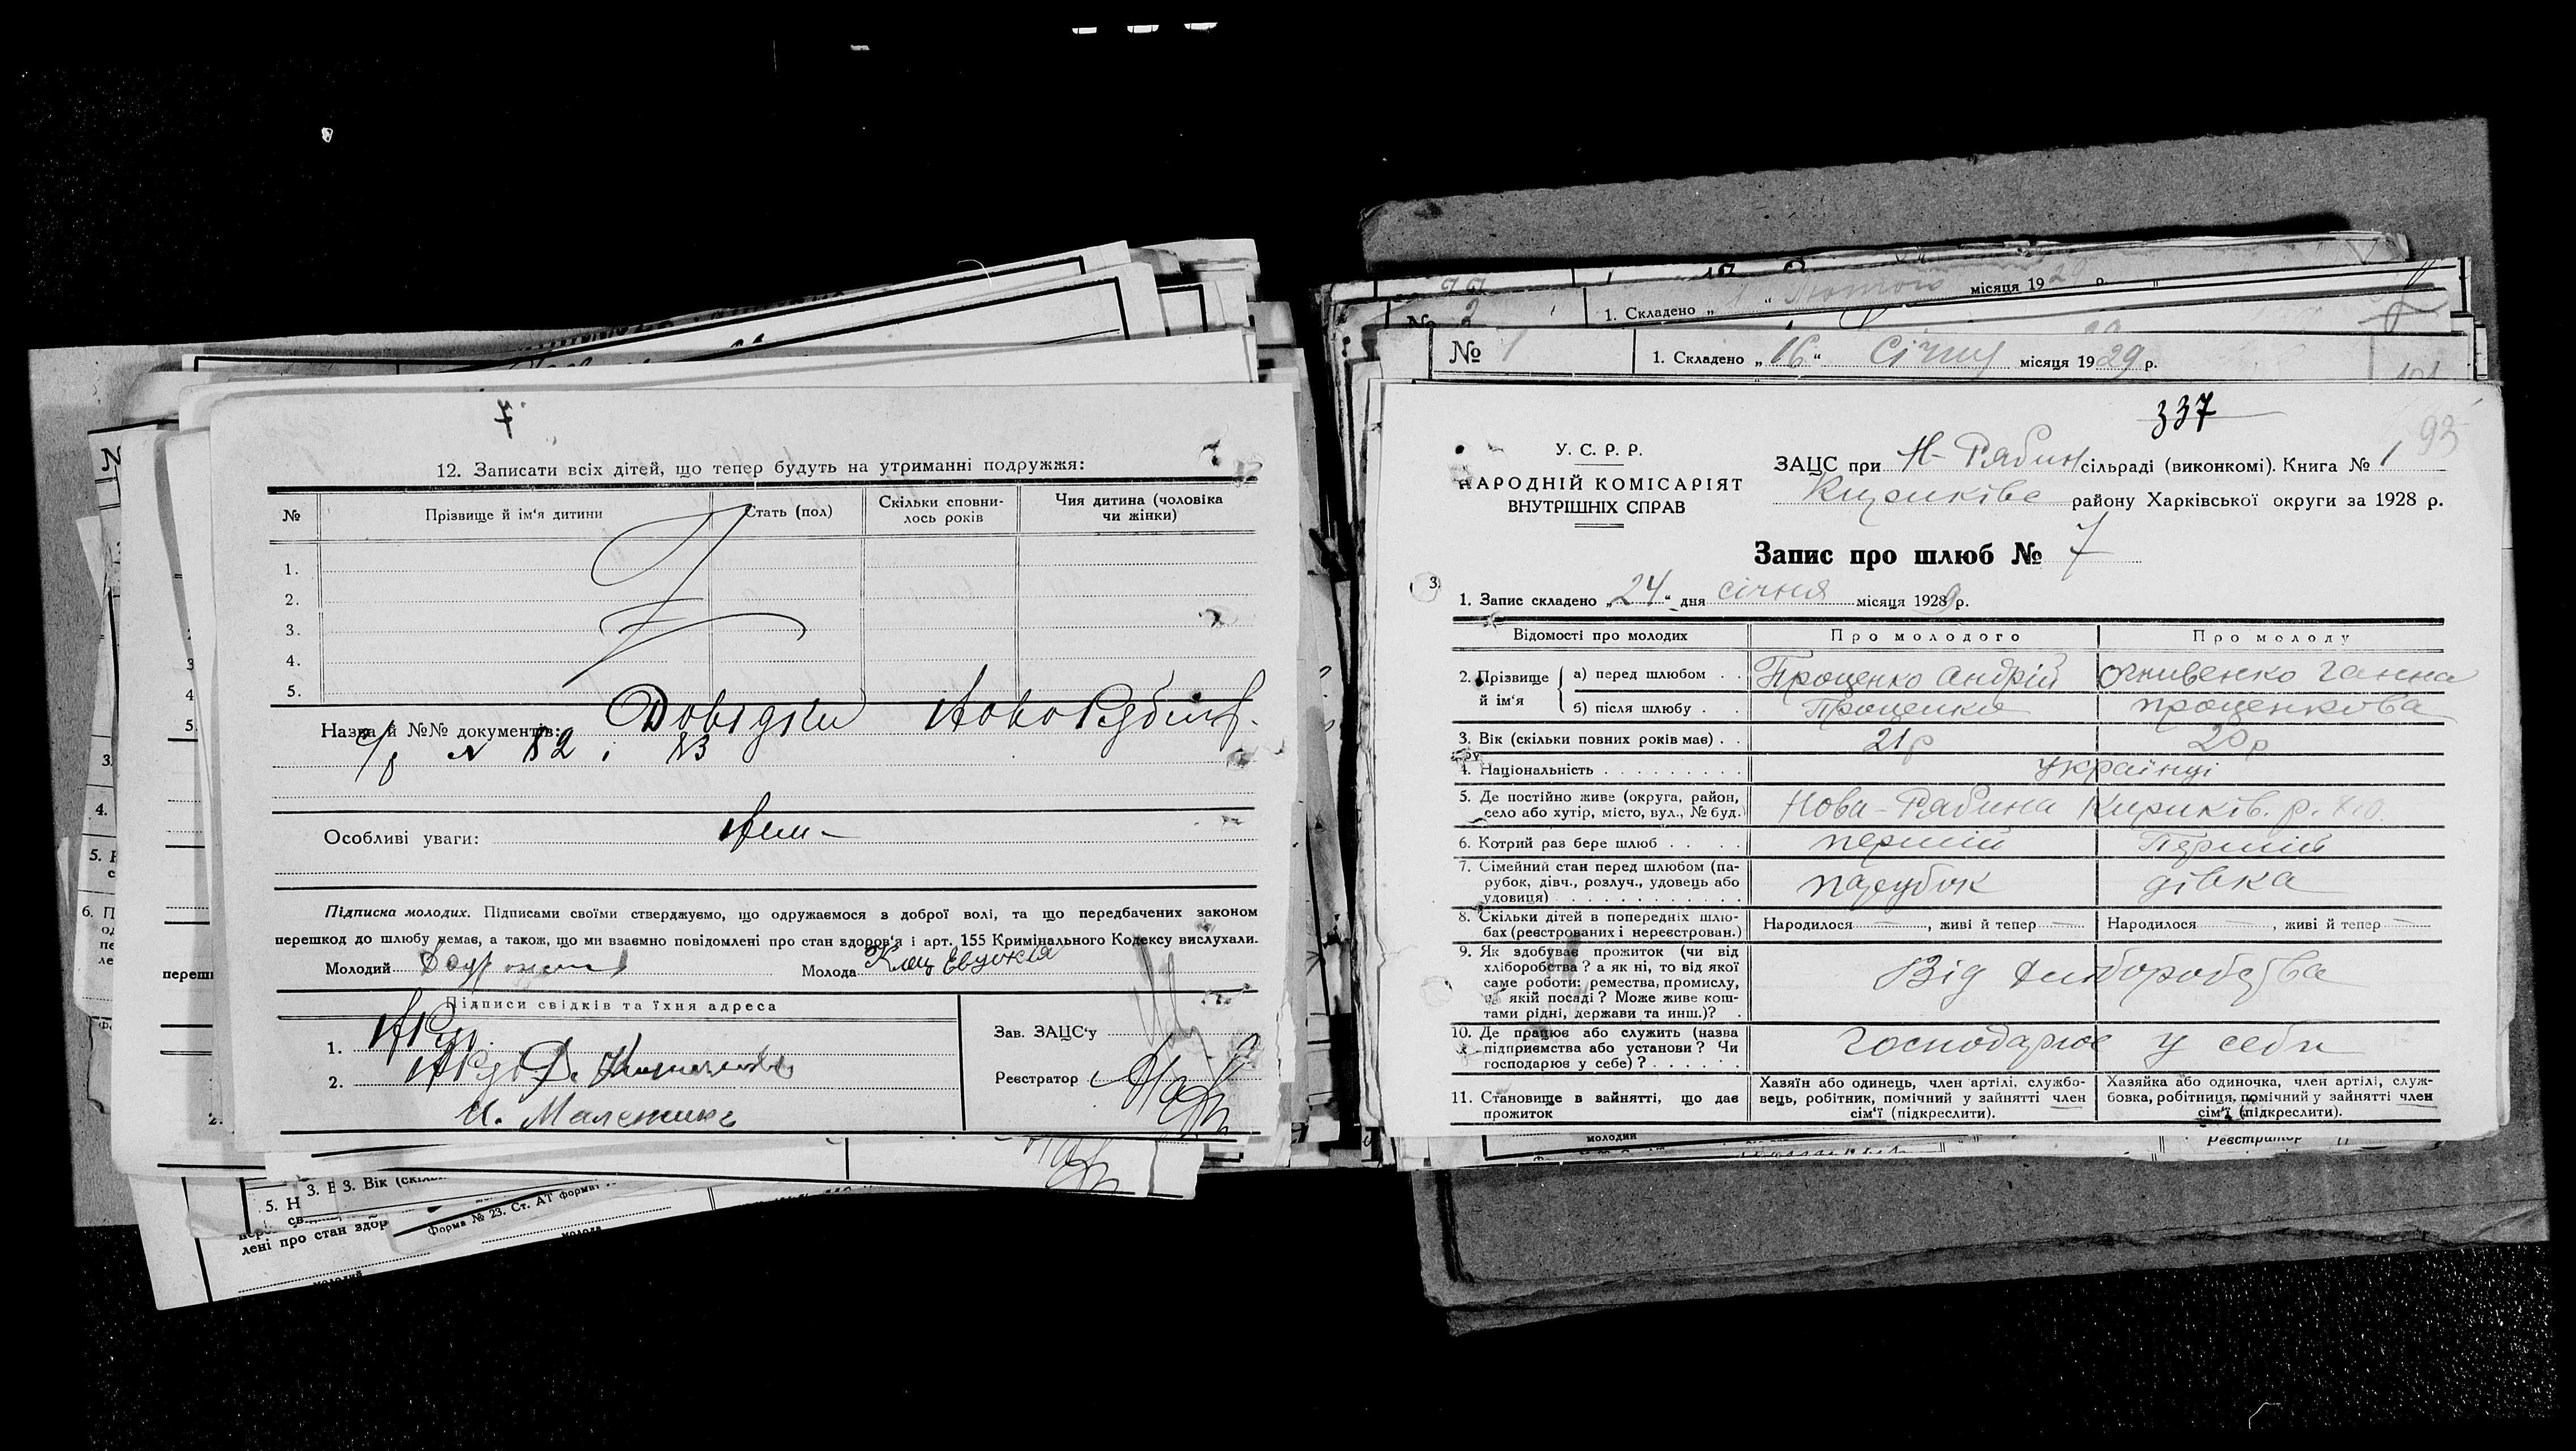 7
12. Записати всіх дітей, що тепер будуть на утриманні подружжя:
№ Прізвище й ім'я дитини Стать (пол) Скільки сповни-
лось років Чия дитина (чоловіка
чи жінки)
1.
2.
3.
4.
5.
Назва й №№ документів: Довідки
№ 82 і 83
Особливі уваги:
Підписка молодих. Підписами своїми стверджуємо, що одружаємося з доброї волі, та що передбачених законом
перешкод до шлюбу немає, а також, що ми взаємно повідомлені про стан здоров'я і арт. 155 Кримінального Кодексу вислухали.
Молодий Молода Клец Евдокія
Підписи свідків та їхня адреса
1.
2.
Зав. ЗАЦС'у
Реєстратор
5. Н
3. Е 3. Вік
лені про стан здор
Форма № 23. Ст. АТ формат
молодий
молода
№ 2 1. Складено „ " Лютого місяця 1929 р.
№ 1 1. Складено „16" Січня місяця 1929 р.
337
93
У. С. Р. Р.
НАРОДНІЙ КОМІСАРІЯТ
ВНУТРІШНІХ СПРАВ
ЗАЦС при Н-Рябин сільраді (виконкомі). Книга № 1
Кириківс району Харківської округи за 1928 р.
Запис про шлюб № 7
1. Запис складено „24" дня січня місяця 1929 р.
Відомості про молодих Про молодого Про молоду
2. Прізвище й ім'я а) перед шлюбом . . Проценко Андрій Огнивенко Ганна
б) після шлюбу . . Проценко Проценкова
3. Вік (скільки повних років має) . . 21 р 20 р
4. Національність . . . . . . . . . українці
5. Де постійно живе (округа, район,
село або хутір, місто, вул., № буд. Нова-Рябина Кириків. р. Х.о.
6. Котрий раз бере шлюб . . . . перший Перший
7. Сімейний стан перед шлюбом (па-
рубок, дівч., розлуч., удовець або
удовиця) . . . . . . . . . . . парубок дівка
8. Скільки дітей в попередніх шлю-
бах (реєстрованих і нереєстрован.) Народилося —, живі й тепер — Народилося —, живі й тепер —
9. Як здобуває прожиток (чи від
хліборобства? а як ні, то від якої
саме роботи: ремества, промислу,
на якій посаді? Може живе кош-
тами рідні, держави та инш.)? . Від хліборобства
10. Де працює або служить (назва
підприємства або установи? Чи
господарює у себе)? . . . . . . Господарює у себе
11. Становище в зайнятті, що дає
прожиток
Хазяїн або одинець, член артілі, службо-
вець, робітник, помічний у зайнятті член
сім'ї (підкреслити).
Хазяйка або одиночка, член артілі, служ-
бовка, робітниця, помічний у зайнятті член
сім'ї (підкреслити).
молодий
Реєстратор